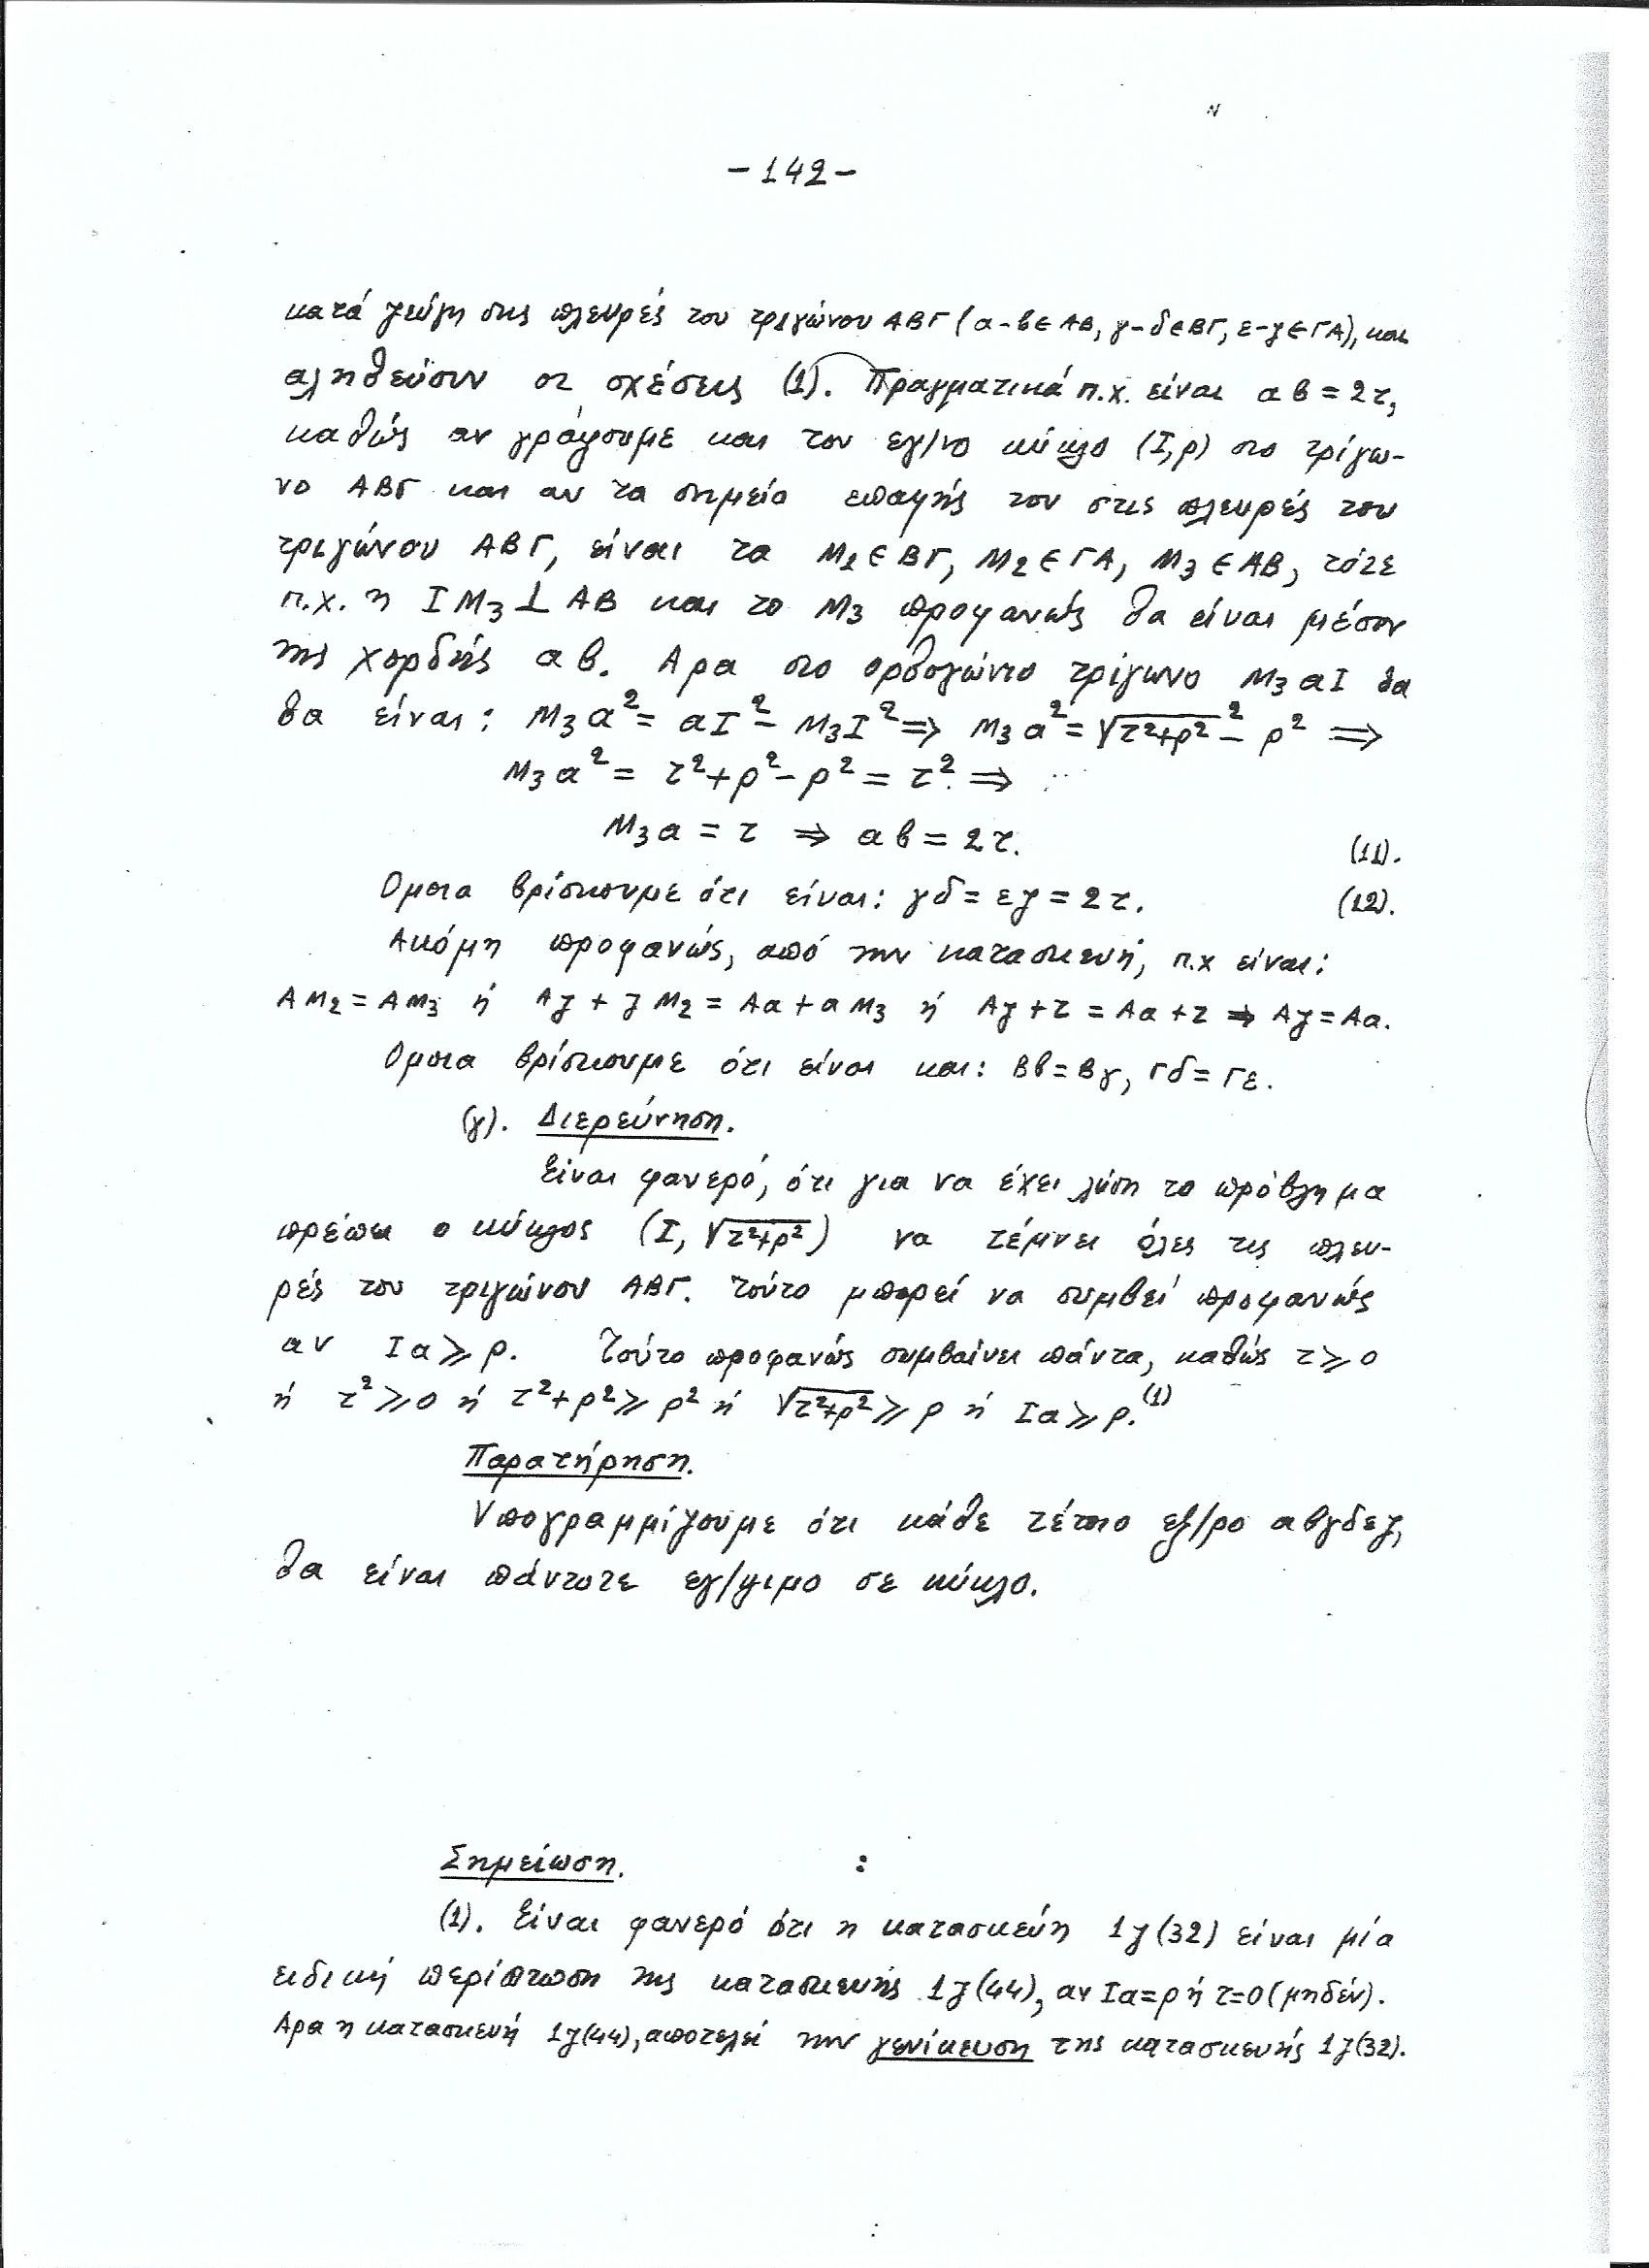 -142-
κατά ζεύγη στις πλευρές του τριγώνου ΑΒΓ (α-β∈ΑΒ, γ-δ∈ΒΓ, ε-ζ∈ΓΑ), και
αληθεύουν οι σχέσεις (1). Πραγματικά π.χ. είναι αβ=2τ,
καθώς αν γράψουμε και τον εγ/νο κύκλο (Ι,ρ) στο τρίγω-
νο ΑΒΓ και αν τα σημεία επαφής του στις πλευρές του
τριγώνου ΑΒΓ, είναι τα Μ1∈ΒΓ, Μ2∈ΓΑ, Μ3∈ΑΒ, τότε
π.χ. η ΙΜ3⊥ΑΒ και το Μ3 προφανώς θα είναι μέσον
της χορδής αβ. Αρα στο ορθογώνιο τρίγωνο Μ3αΙ θα
θα είναι: Μ3α²=αΙ²-Μ3Ι²⇒ Μ3α²=√τ²+ρ²²-ρ² ⇒
Μ3α²= τ²+ρ²-ρ²=τ².⇒
Μ3α=τ ⇒ αβ=2τ. (11).
Ομοια βρίσκουμε ότι είναι: γδ=εζ=2τ. (12).
Ακόμη προφανώς, από την κατασκευή, π.χ είναι:
ΑΜ2=ΑΜ3 ή Αζ+ζΜ2=Αα+αΜ3 ή Αζ+τ=Αα+τ ⇒ Αζ=Αα.
Ομοια βρίσκουμε ότι είναι και: Ββ=Βγ, Γδ=Γε.
(γ). Διερεύνηση.
Είναι φανερό, ότι για να έχει λύση το πρόβλημα
πρέπει ο κύκλος (Ι, √τ²+ρ²) να τέμνει όλες τις πλευ-
ρές του τριγώνου ΑΒΓ. Τούτο μπορεί να συμβεί προφανώς
αν Ια⩾ρ. Τούτο προφανώς συμβαίνει πάντα, καθώς τ⩾0
ή τ²⩾0 ή τ²+ρ²⩾ρ² ή √τ²+ρ²⩾ρ ή Ια⩾ρ.(1)
Παρατήρηση.
Υπογραμμίζουμε ότι κάθε τέτοιο εξ/ρο αβγδεζ,
θα είναι πάντοτε εγ/ψιμο σε κύκλο.
Σημείωση. :
(1). Είναι φανερό ότι η κατασκεύη 1ζ(32) είναι μία
ειδική περίπτωση της κατασκευής 1ζ(44), αν Ια=ρ ή τ=0(μηδέν).
Αρα η κατασκευή 1ζ(44), αποτελεί την γενίκευση της κατασκευής 1ζ(32).